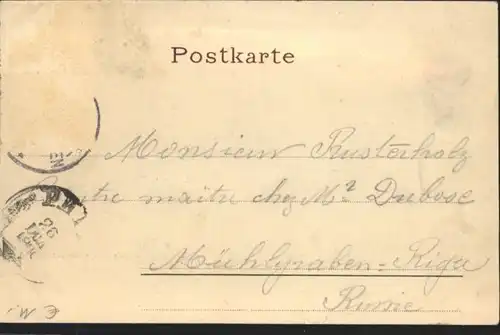 Postkarte
Monsieur Rusterholz
Contre maitre chez Mr Dubose
Mühlgraben-Riga
Russie
26